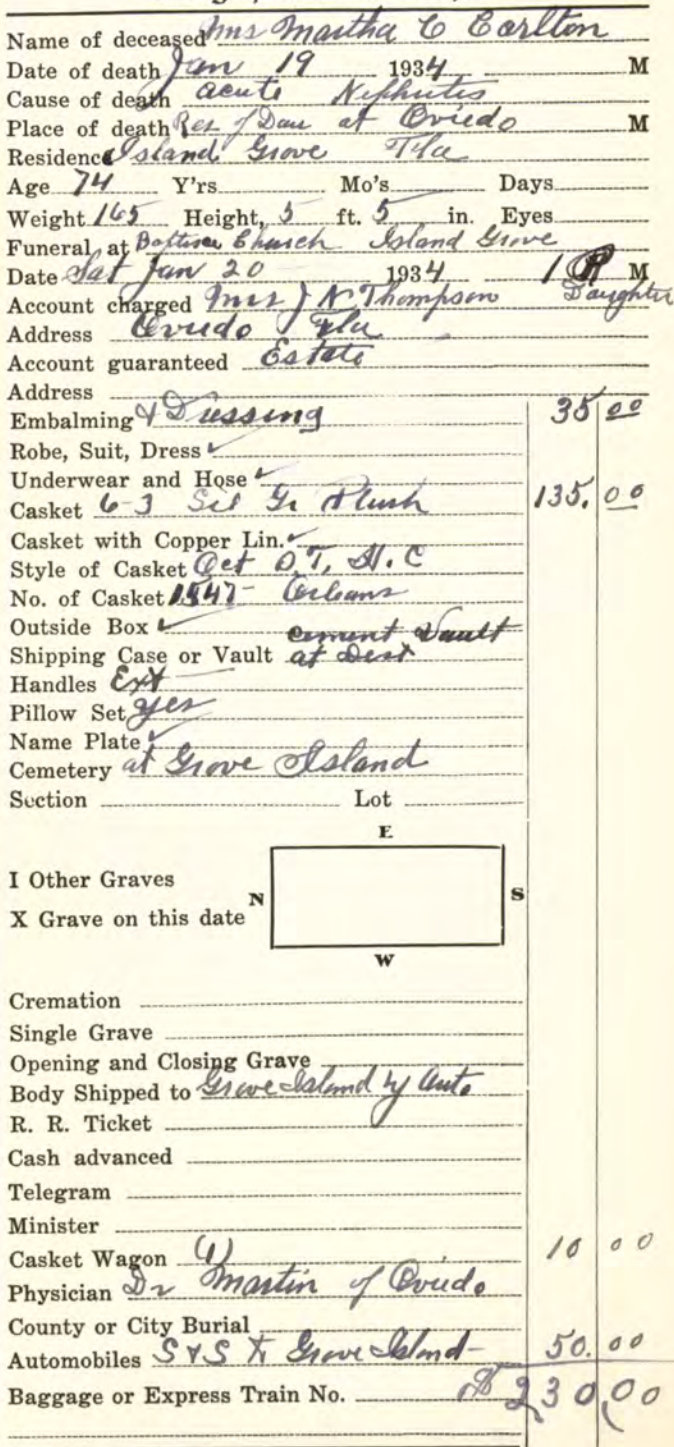 Name of deceased Mrs Martha C Carlton
Date of death Jan 19 1934 M
Cause of death acute Nephritis
Place of death Res of Dau at Oviedo M
Residence Island Grove Fla
Age 74 Y'rs Mo's Days
Weight 165 Height, 5 ft. 5 in. Eyes
Funeral at Baptise Church Island Grove
Date Sat Jan 20 1934 1 P M
Account charged Mrs J N Thompson Daughter
Address Oviedo Fla
Account guaranteed Estate
Address
Embalming & Dressing 35 00
Robe, Suit, Dress ✓
Underwear and Hose ✓
Casket 6-3 Sil Gr Plush 135. 00
Casket with Copper Lin. ✓
Style of Casket Oct D.T. H.C
No. of Casket 1547 - Orleans
Outside Box ✓ cement Vault
Shipping Case or Vault at Dest
Handles Ext
Pillow Set yes
Name Plate ✓
Cemetery at Grove Island
Section Lot
E
I Other Graves
N S
X Grave on this date
W
Cremation
Single Grave
Opening and Closing Grave
Body Shipped to Grove Island by Auto
R. R. Ticket
Cash advanced
Telegram
Minister
Casket Wagon (1) 10 00
Physician Dr Martin of Oviedo
County or City Burial
Automobiles S & S to Grove Island - 50. 00
Baggage or Express Train No. $ 230,00